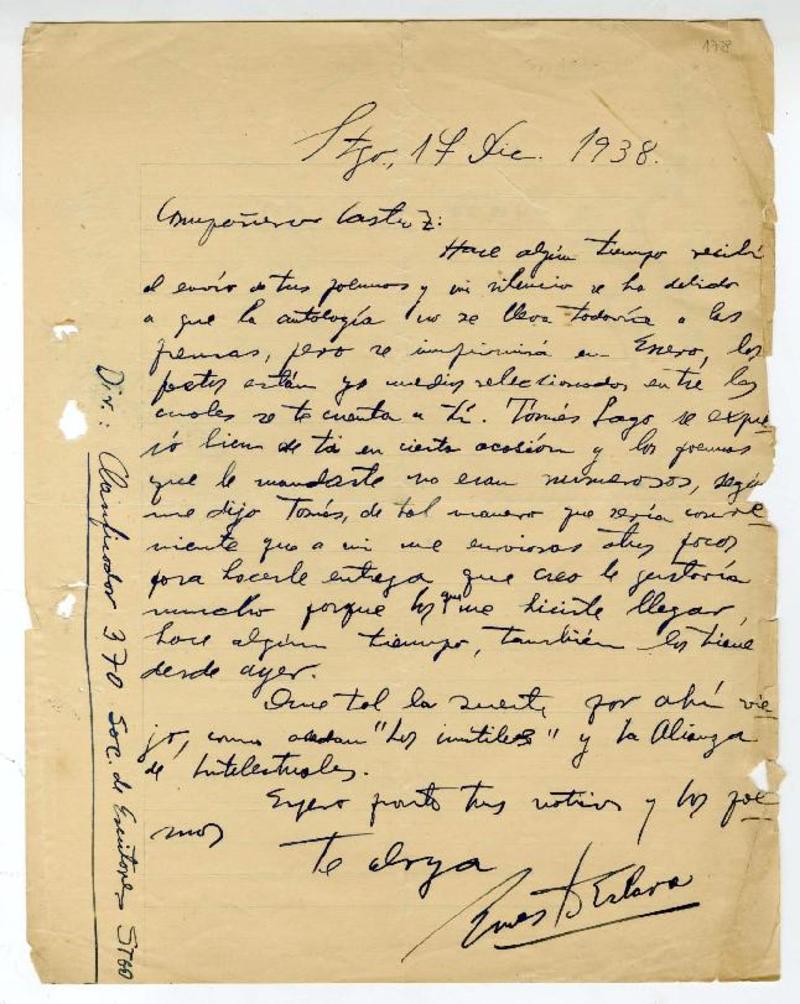 1938
Stgo., 17 Dic. 1938.
Compañero Castro Z:
Hace algún tiempo recibí
el envío de tus poemas y mi silencio se ha debido
a que la antología no se lleva todavía a las
prensas, pero se imprimirá en Enero, los
poetas están ya medios seleccionados entre los
cuales se te cuenta a tí. Tomás Lago se expre
só bien de tí en cierta ocasión y los poemas
que le mandaste no eran numerosos, según
me dijo Tomás, de tal manera que sería conve
niente que a mi me enviaras otros pocos
para hacerle entrega que creo le gustaría
mucho porque los que me hiciste llegar,
hace algún tiempo, también los tiene
desde ayer.
Que tal la suerte, por ahí vie
jo, como andan "Los inútiles" y la Alianza
de Intelectuales.
Espero pronto tus noticias y los poe
mas
Te abraza
Eslava
Dir.: Clasificador 370 Soc. de Escritores STGO